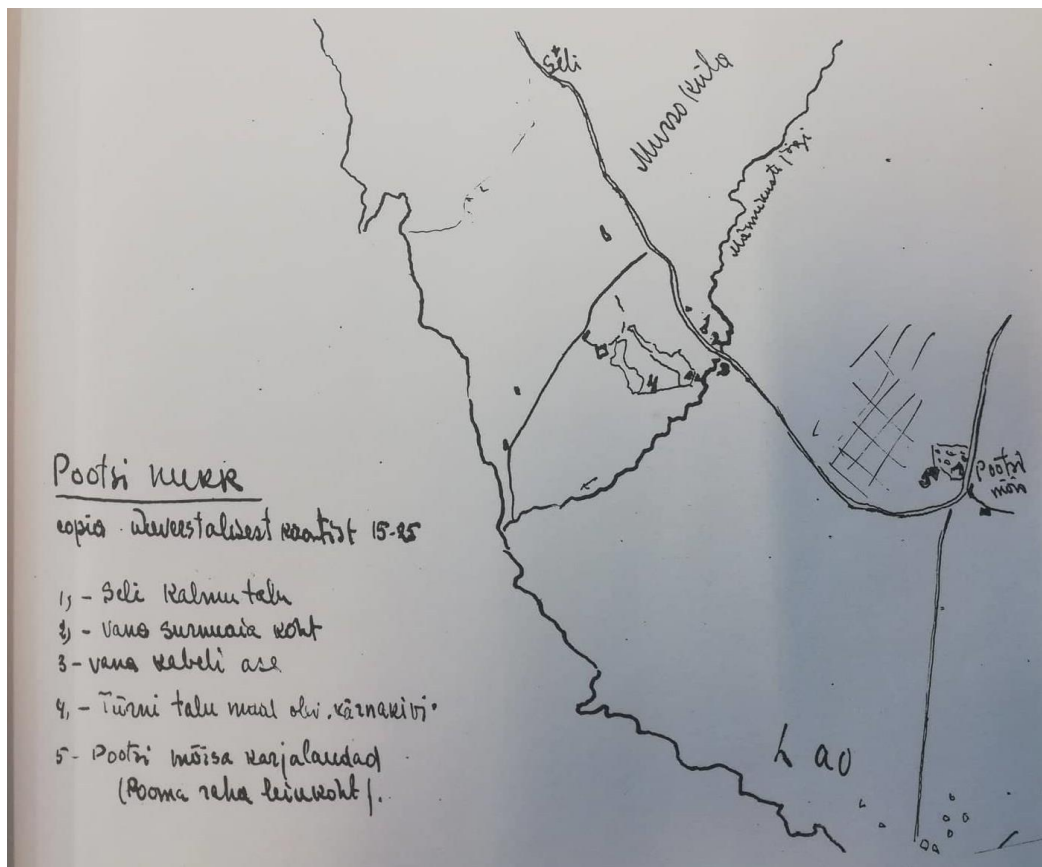 Seli
Murro küla
Männikuste jõgi
1
2
3
4
Pootsi
mõis
Pootsi nukk
copia üheverstalisest kaardist 15-25
1, - Seli Kalmu talu
2, - vana surnuaia koht
3 - vana kabeli ase
4, - Türni talu maal olev. kärnakivi.
5 - Pootsi mõisa karjalaudad
(Rooma raha leiukoht).
Lao